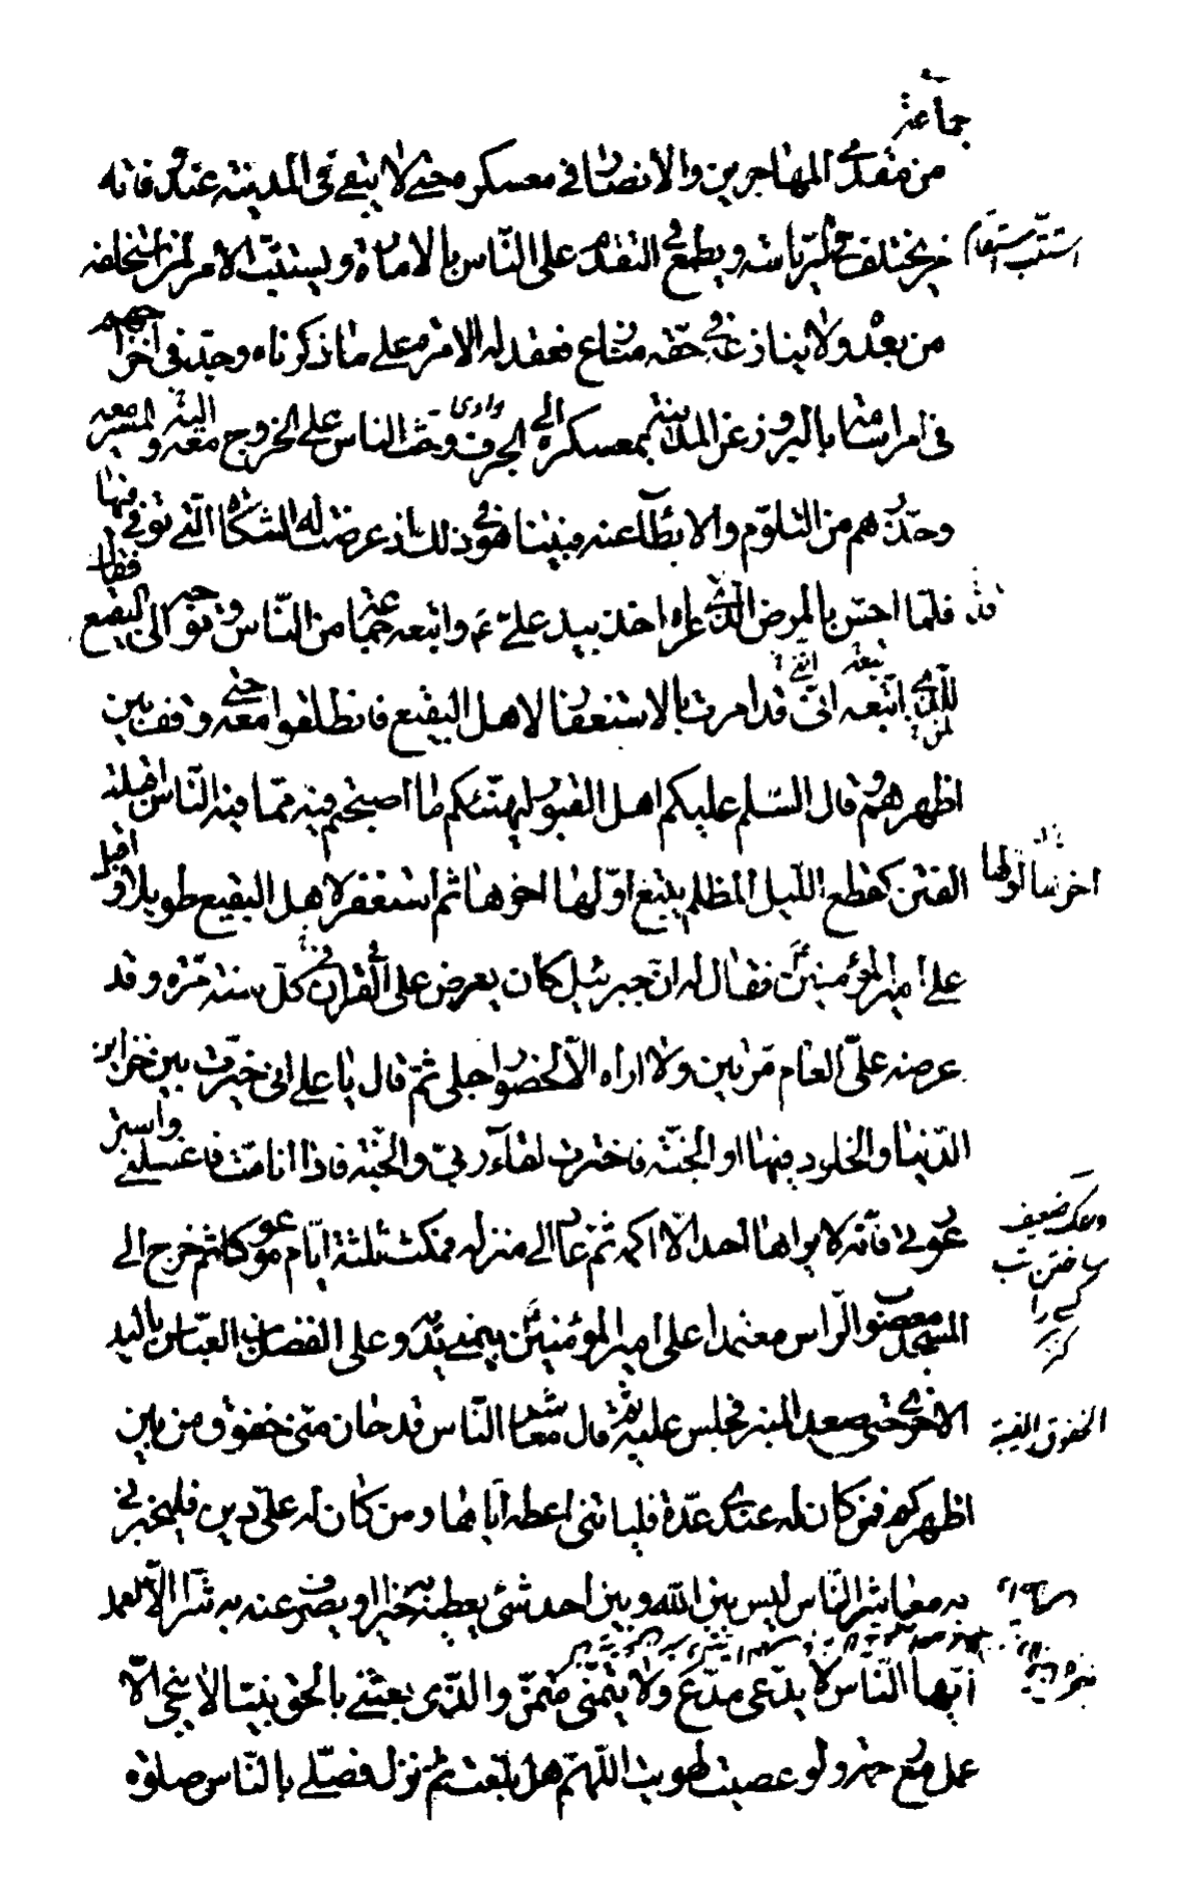 جماعة
من متقدمى المهاجرين والأنصار فى معسكره حتى لا يبقى فى المدينة عند وفاته
من يختلف فى الرياسة ويطمع فى التقدم على الناس بالامارة ويستتب الأمر لمن استخلفه
استتب استقام
من بعده ولا ينازعه فى حقه منازع فعقد له الامرة على ما ذكرناه وجد فى اخراجهم
فى امر اسامة بالبروز عن المدينة بمعسكره الى الجرف وحث الناس على الخروج اليه والمسير معه
وادى
وحذرهم من التلوم والابطآء عنه فبينا هو فى ذلك اذ عرضت له الشكاة التى توفى فيها
فلما احس بالمرض الذى عراه اخذ بيد على ع واتبعه جماعة من الناس وتوجه الى البقيع فقال
للذى اتبعه انى قد امرت بالاستغفار لاهل البقيع فانطلقوا معه حتى وقف بين
اظهرهم وقال السلم عليكم اهل القبور ليهنئكم ما اصبحتم فيه مما فيه الناس اقبلت
الفتن كقطع الليل المظلم يتبع اولها اخرها ثم استغفر لاهل البقيع طويلا واقبل
اخرها اولها
على امير المؤمنين ع فقال له ان جبرئيل كان يعرض على القران فى كل سنة مرة وقد
عرضه على العام مرتين ولا اراه الا لحضور اجلى ثم قال يا على انى خيرت بين خزاين
الدنيا والخلود فيها او الجنة فاخترت لقاء ربى والجنة فاذا انا مت فاغسلنى واستر
عورتى فانه لا يراها احد الا اكمه ثم عاد الى منزله فمكث ثلثة ايام موعوكا ثم خرج الى
وعك ضعيف
ساختن تب
كسى را
المسجد معصوب الراس معتمدا على امير المؤمنين ع بيمنى يديه وعلى الفضل بن العباس باليد
الاخرى حتى صعد المنبر فجلس عليه ثم قال معاشر الناس قد حان منى خفوق من بين
الخفوق الغيبة
اظهركم فمن كان له عندى عدة فلياتنى اعطه اياها ومن كان له على دين فليخبرنى
به معاشر الناس ليس بين الله وبين احد شئ يعطيه به خيرا او يصرف عنه به شرا الا العمل
ايها الناس لا يدعى مدع ولا يتمنى متمن والذى بعثنى بالحق نبيا لا ينجى الا
عمل مع رحمة ولو عصيت لهويت اللهم هل بلغت ثم نزل فصلى بالناس صلوة